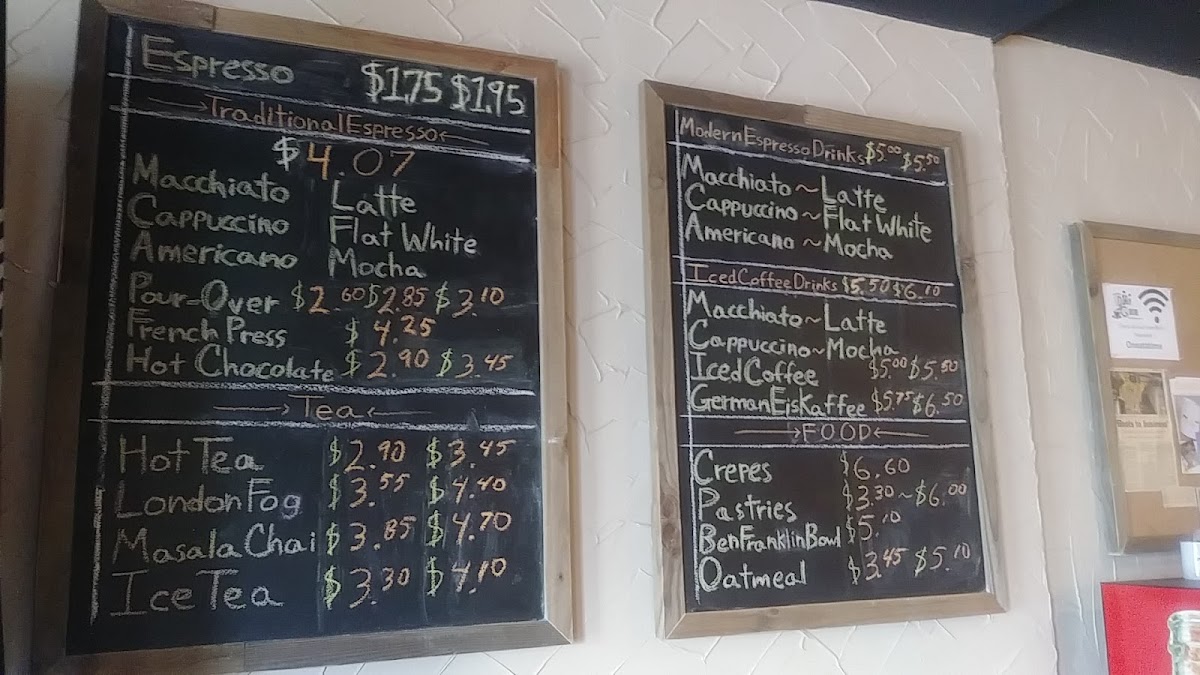 Espresso $1.75 $1.95
Traditional Espresso
$4.07
Macchiato Latte
Cappuccino Flat White
Americano Mocha
Pour-Over $2.60 $2.85 $3.10
French Press $4.25
Hot Chocolate $2.90 $3.45
Tea
Hot Tea $2.90 $3.45
London Fog $3.55 $4.40
Masala Chai $3.85 $4.70
Ice Tea $3.30 $4.10
Modern Espresso Drinks $5.00 $5.50
Macchiato ~ Latte
Cappuccino ~ Flat White
Americano ~ Mocha
Iced Coffee Drinks $5.50 $6.10
Macchiato ~ Latte
Cappuccino ~ Mocha
Iced Coffee $5.00 $5.50
German Eis Kaffee $5.75 $6.50
FOOD
Crepes $6.60
Pastries $3.30 ~ $6.00
Ben Franklin Bowl $5.10
Oatmeal $3.45 $5.10